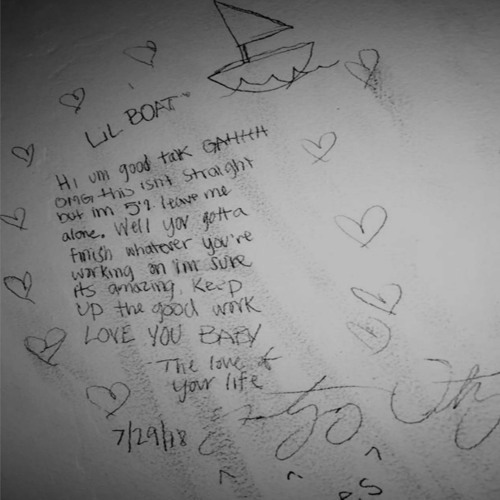 LIL BOAT
Hi um good talk GAHHH
OMG this isnt straight
but im 5'2 leave me
alone. Well you gotta
finish whatever you're
working on im sure
its amazing. Keep
up the good work
LOVE YOU BABY
-The love of
your life
7/29/18
P.S